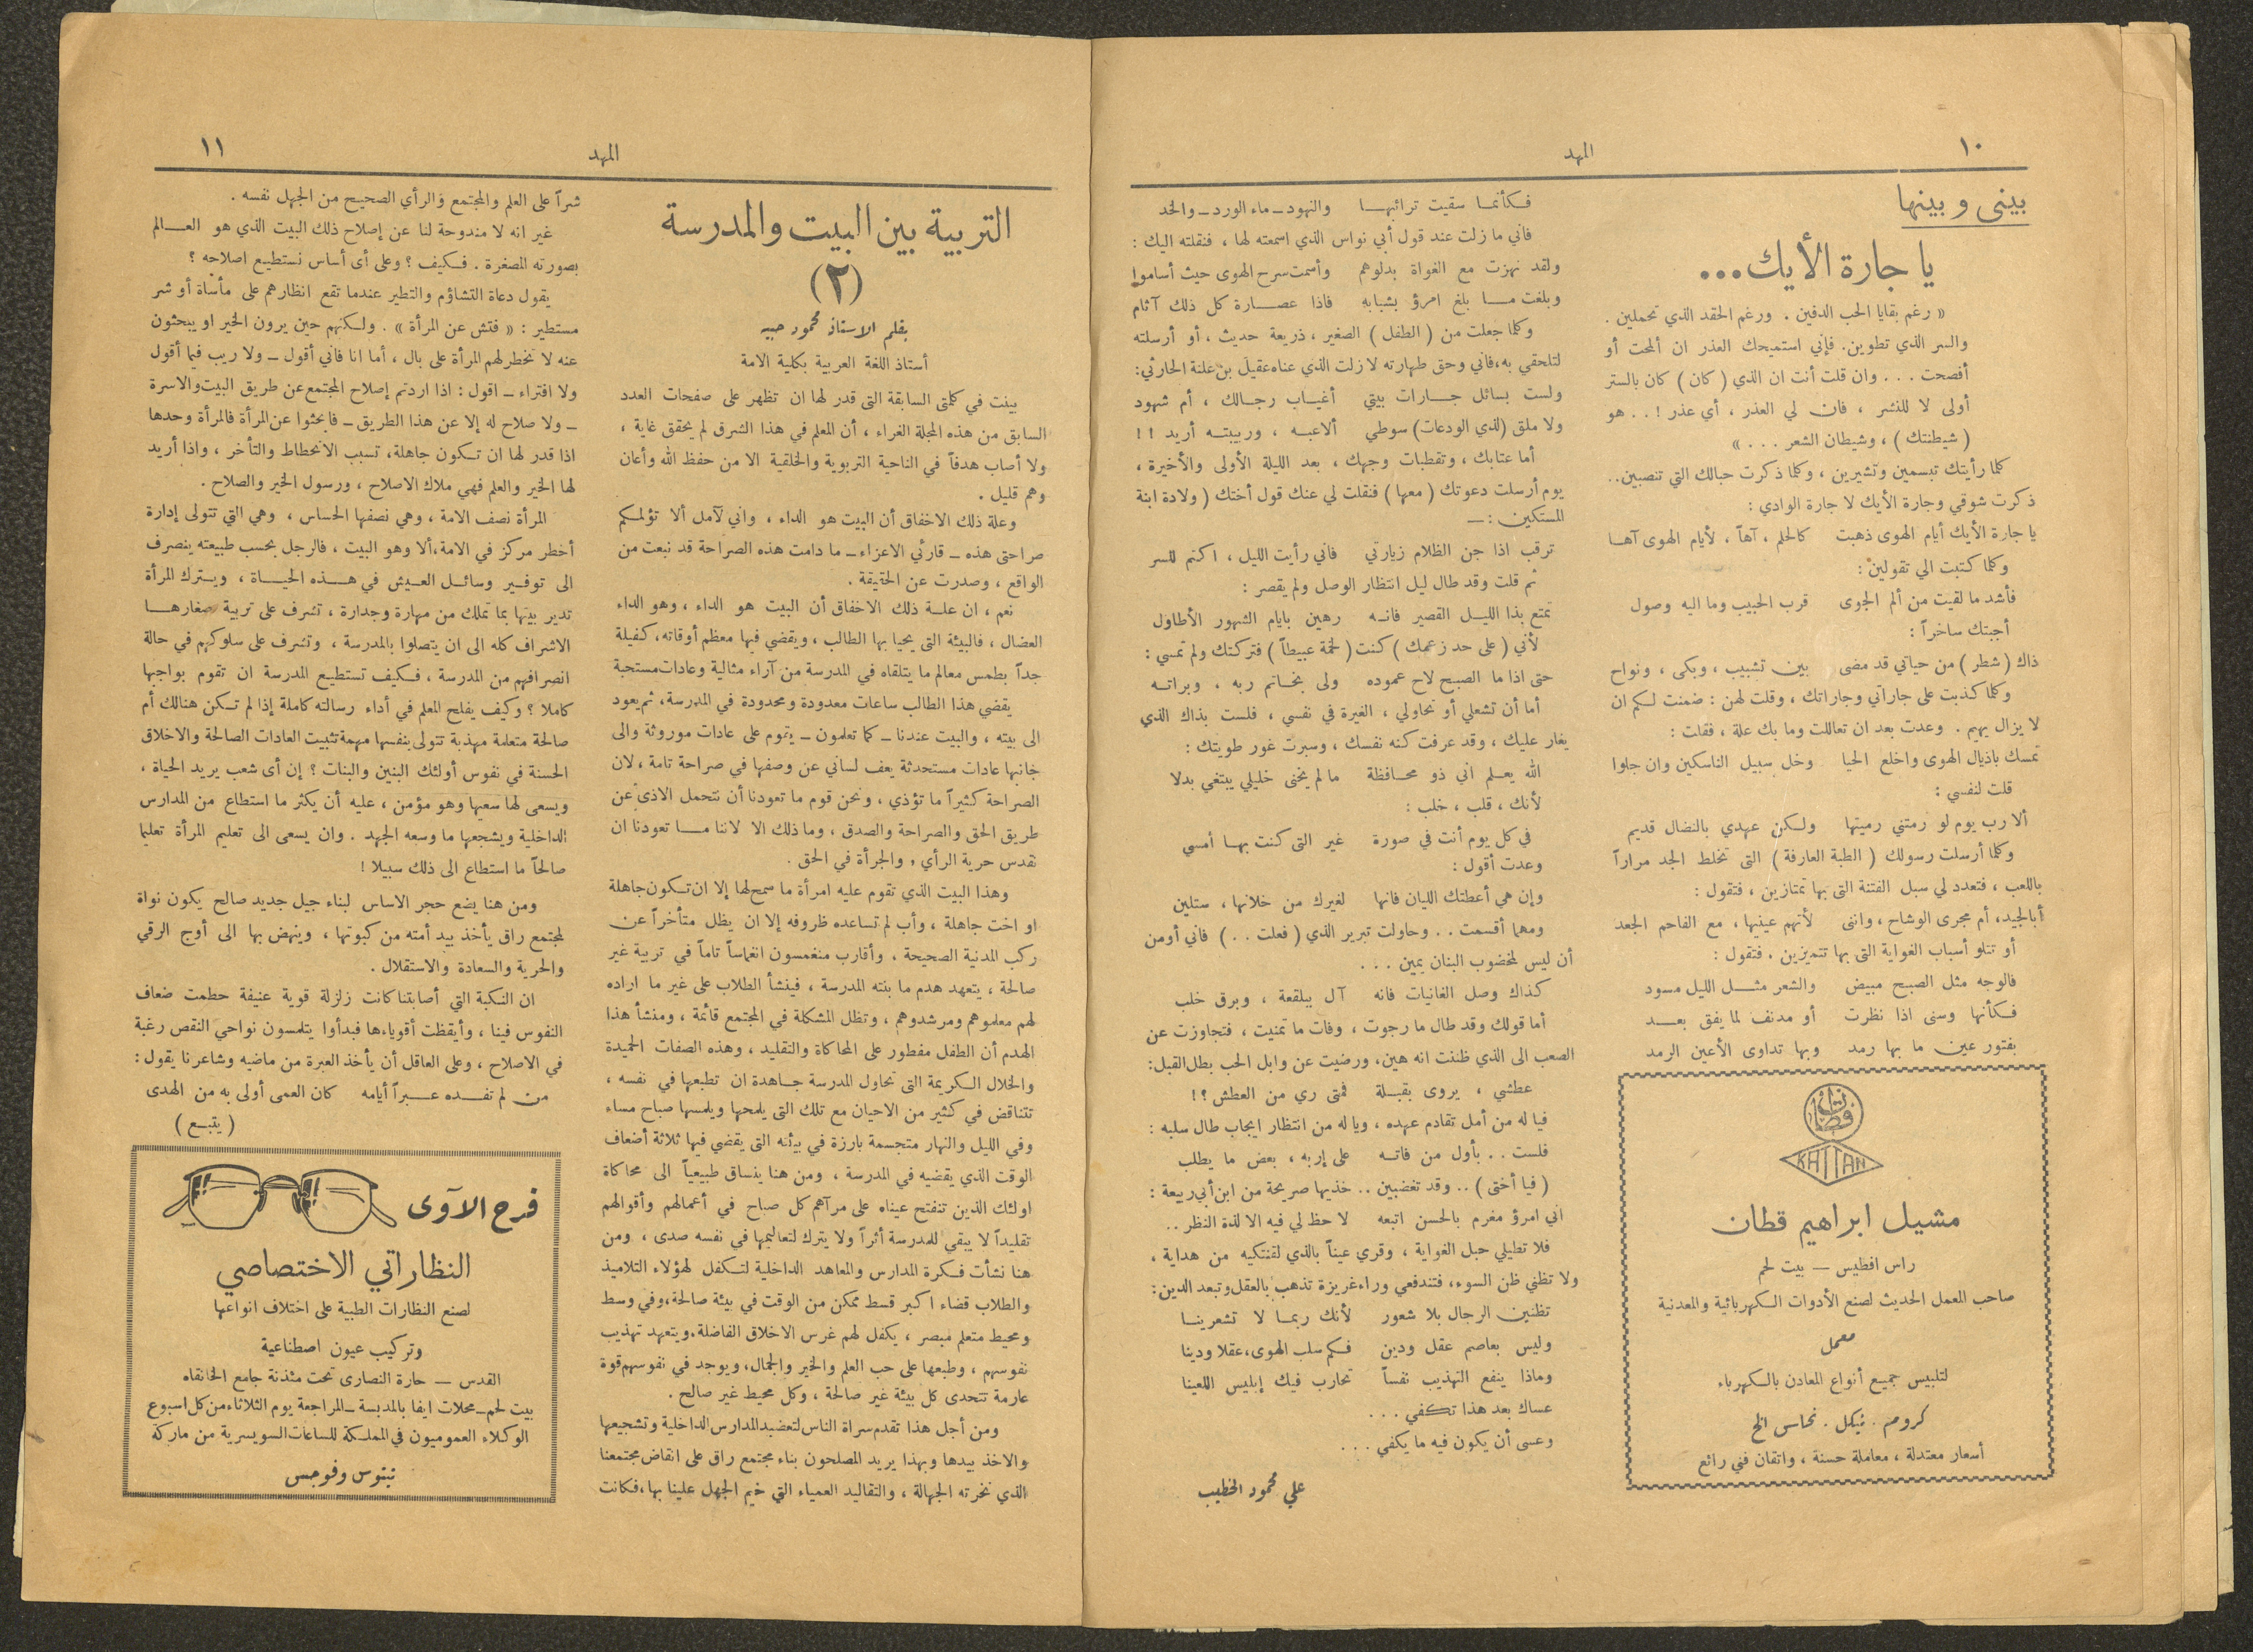 ١٠
المهد
بيني و بينها
يا جارة الأيك...
« رغم بقايا الحب الدفين . ورغم الحقد الذي تحملين .
والسر الذي تطوين. فإني استميحك العذر ان ألمحت أو
أفصحت . . . وان قلت أنت ان الذي ( كان ) كان بالستر
أولى لا للنشر ، فان لي العذر ، أي عذر ! . . هو
( شيطنتك ) ، وشيطان الشعر . . . »
كلما رأيتك تبسمين وتشيرين ، وكلما ذكرت حبالك التي تنصبين..
ذكرت شوقي وجارة الأيك لا جارة الوادي :
يا جارة الأيك أيام الهوى ذهبت كالحلم ، آهاً ، لأيام الهوى آهـا
وكلما كتبت الي تقولين :
فأشد ما لقيت من ألم الجوى قرب الحبيب وما اليه وصول
أجبتك ساخراً :
ذاك ( شطر ) من حياتي قد مضى بين تشبيب ، وبكى ، ونواح
وكلما كذبت على جاراتي وجاراتك ، وقلت لهن : ضمنت لكم ان
لا يزال يهيم . وعدت بعد ان تعاللت وما بك علة ، فقلت :
تمسك باذيال الهوى واخلع الحيا وخل سبيل الناسكين وان جلوا
قلت لنفسي :
ألا رب يوم لو رمتني رميتها ولكن عهدي بالنضال قديم
وكلما أرسلت رسولك ( الطبة العارفة ) التى تخلط الجد مراراً
باللعب ، فتعدد لي سبل الفتنة التى بها تمتازين ، فتقول :
أبالجيد، أم مجرى الوشاح ، وانني لأتهم عينيها ، مع الفاحم الجعد
أو تتلو أسباب الغواية التى بها تتميزين . فتقول :
فالوجه مثل الصبح مبيض والشعر مثــل الليل مسود
فـكأنها وسنى اذا نظرت أو مدنف لما يفق بعـــد
بفتور عين ما بها رمد وبها تداوى الأعين الرمد
قطان
KATTAN
مشيل ابراهيم قطان
راس افطيس — بيت لحم
صاحب المعمل الحديث لصنع الأدوات الكهربائية والمعدنية
معمل
لتلبيس جميع أنواع المعادن بالكهرباء
كروم . نيكل . نحاس الخ
أسعار معتدلة ، معاملة حسنة ، واتقان فني رائع
فـكأنمـا سقيت ترائبهـا والنهود ـ ماء الورد ـ والخد
فاني ما زلت عند قول أبي نواس الذي اسمعته لها ، فنقلته اليك :
ولقد نهزت مع الغواة بدلوهم وأسمت سرح الهوى حيث أساموا
وبلغت مـا بلغ امرؤ بشبابه فاذا عصـارة كل ذلك آثام
وكلما جعلت من ( الطفل ) الصغير ، ذريعة حديث ، أو أرسلته
لتلحقي به ، فاني وحق طهارته لا زلت الذي عناه عقيل بن علنة الحارثي:
ولست بسائل جـارات بيتي أغيـاب رجـالك ، أم شهود
ولا ملق (لذي الودعات) سوطي ألاعبـه ، وربيبتـه أريد ! !
أما عتابك ، وتقطبات وجهك ، بعد الليلة الأولى والأخيرة ،
يوم أرسلت دعوتك ( معها ) فنقلت لي عنك قول أختك ( ولادة ابنة
المستكفين : —
ترقب اذا جن الظلام زيارتي فاني رأيت الليل ، اكتم للسر
ثم قلت وقد طال ليل انتظار الوصل ولم يقصر :
تمتع بذا الليـل القصير فانـه رهين بايام الشهور الأطاول
لأني ( على حد زعمك ) كنت ( لحمة عبيطاً ) فتركتك ولم تمسي :
حتى اذا ما الصبح لاح عموده ولى بخـاتم ربه . وبراتـه
أما أن تشعلي أو تحاولي ، الغيرة في نفسي ، فلست بذاك الذي
يغار عليك ، وقد عرفت كنه نفسك ، وسبرت غور طويتك :
الله يعـلم اني ذو محـافظة ما لم يخنى خليلي يبتغي بدلا
لأنك ، قلب ، خلب :
في كل يوم أنت في صورة غير التى كنت بهـا أمسي
وعدت أقول :
وإن هي أعطتك الليان فانها لغيرك من خلانها ، ستلين
ومهما أقسمت . . وحاولت تبرير الذي ( فعلت . . ) فاني أومن
أن ليس لمخضوب البنان يمين . . .
كذاك وصل الغانيات فانه آل يبلقعة ، وبرق خلب
أما قولك وقد طال ما رجوت ، وفات ما تمنيت ، فتجاوزت عن
الصعب الى الذي ظننت انه هين، ورضيت عن وابل الحب بطل القبل:
عطشي ، يروى بقبـلة فمتى ري من العطش ؟ !
فيا له من أمل تقادم عهده ، ويا له من انتظار ايجاب طال سلبه :
فلست . . بأول من فاتـه على إربه ، بعض ما يطلب
( فيا أختى ) .. وقد تغضبين .. خذيها صريحة من ابن أبي ربيعة :
اني امرؤ مغرم بالحسن اتبعه لا حظ لي فيه الا لذة النظر ..
فلا تطيلي حبل الغواية ، وقري عيناً بالذي لقنتكيه من هداية ،
ولا تظني ظن السوء، فتندفعي وراء غريزة تذهب بالعقل وتبعد الدين:
تظنين الرجال بلا شعور لأنك ربمـا لا تشعرينـا
وليس بعاصم عقل ودين فـكم سلب الهوى، عقلا ودينا
وماذا ينفع التهذيب نفساً تحارب فيك إبليس اللعينا
عساك بعد هذا تكفي . . .
وعسى أن يكون فيه ما يكفي . . .
علي محمود الخطيب
المهد
١١
التربية بين البيت والمدرسة
(٢)
بقلم الاستاذ محمود حبيه
أستاذ اللغة العربية بكلية الامة
بينت في كلمتى السابقة التى قدر لها ان تظهر على صفحات العدد
السابق من هذه المجلة الغراء ، أن المعلم في هذا الشرق لم يحقق غاية ،
ولا أصاب هدفاً في الناحية التربوية والخلقية الا من حفظ الله وأعان
وهم قليل .
وعلة ذلك الاخفاق أن البيت هو الداء ، واني لآمل ألا تؤلمـكم
صراحتى هذه ـ قارئي الاعزاء ـ ما دامت هذه الصراحة قد نبعت من
الواقع ، وصدرت عن الحقيقة .
نعم ، ان علـة ذلك الاخفاق أن البيت هو الداء ، وهو الداء
العضال ، فالبيئة التى يحيا بها الطالب ، ويقضي فيها معظم أوقاته، كفيلة
جداً بطمس معالم ما يتلقاه في المدرسة من آراء مثالية وعادات مستحبة
يقضي هذا الطالب ساعات معدودة ومحدودة في المدرسة، ثم يعود
الى بيته ، والبيت عندنا ـ كما تعلمون ـ يتموم على عادات موروثة والى
جانبها عادات مستحدثة يعف لساني عن وصفها في صراحة تامة ، لان
الصراحة كثيراً ما تؤذي ، ونحن قوم ما تعودنا أن نتحمل الاذى عن
طريق الحق والصراحة والصدق ، وما ذلك الا لاننا مـا تعودنا ان
نقدس حرية الرأي , والجرأة في الحق .
وهذا البيت الذي تقوم عليه امرأة ما سمح لها إلا ان تـكون جاهلة
او اخت جاهلة ، وأب لم تساعده ظروفه إلا ان يظل متأخراً عن
ركب المدنية الصحيحة ، وأقارب منغمسون انغماساً تاماً في تربية غير
صالحة ، يتعهد هدم ما بنته المدرسة ، فينشأ الطلاب على غير ما اراده
لهم معلموهم ومرشدوهم ، وتظل المشكلة في المجتمع قائمة ، ومنشأ هذا
الهدم أن الطفل مفطور على المحاكاة والتقليد ، وهذه الصفات الحميدة
والخلال الكريمة التى تحاول المدرسة جـاهدة ان تطبعها في نفسه ،
تتناقض في كثير من الاحيان مع تلك التى يلمحها ويلمسها صباح مساء
وفي الليل والنهار متجسمة بارزة في بيئته التى يقضي فيها ثلاثة أضعاف
الوقت الذي يقضيه في المدرسة ، ومن هنا ينساق طبيعياً الى محاكاة
اولئك الذين تنفتح عيناه على مرآهم كل صباح في أعمالهم وأقوالهم
تقليداً لا يبقي للمدرسة أثراً ولا يترك لتعاليمها في نفسه صدى ، ومن
هنا نشأت فـكرة المدارس والمعاهد الداخلية لتـكفل لهؤلاء التلاميذ
والطلاب قضاء اكبر قسط ممكن من الوقت في بيئة صالحة، وفي وسط
ومحيط متعلم مبصر ، يكفل لهم غرس الاخلاق الفاضلة، ويتعهد تهذيب
نفوسهم ، وطبعها على حب العلم والخير والجمال، ويوجد في نفوسهم قوة
عارمة تتحدى كل بيئة غير صالحة ، وكل محيط غير صالح .
ومن أجل هذا تقدم سراة الناس لتعضيد المدارس الداخلية وتشجيعها
والاخذ بيدها وبهذا يريد المصلحون بناء مجتمع راق على انقاض مجتمعنا
الذي نخرته الجهالة ، والتقاليد العمياء التي خيم الجهل علينا بها ، فـكانت
شراً على العلم والمجتمع والرأي الصحيح من الجهل نفسه .
غير انه لا مندوحة لنا عن إصلاح ذلك البيت الذي هو العـالم
بصورته المصغرة . فـكيف ؟ وعلى أى أساس نستطيع اصلاحه ؟
يقول دعاة التشاؤم والتطير عندما تقع انظارهم على مأساة أو شر
مستطير : « فتش عن المرأة » . ولـكنهم حين يرون الخير او يبحثون
عنه لا تخطر لهم المرأة على بال ، أما انا فاني أقول ـ ولا ريب فيما أقول
ولا افتراء ـ اقول : اذا اردتم إصلاح المجتمع عن طريق البيت والاسرة
ـ ولا صلاح له إلا عن هذا الطريق ـ فابحثوا عن المرأة فالمرأة وحدها
اذا قدر لها ان تـكون جاهلة، تسبب الانحطاط والتأخر ، واذا أريد
لها الخير والعلم فهي ملاك الاصلاح ، ورسول الخير والصلاح .
المرأة نصف الامة ، وهي نصفها الحساس ، وهي التي تتولى إدارة
أخطر مركز في الامة، ألا وهو البيت ، فالرجل بحسب طبيعته ينصرف
الى توفـير وسائـل العـيش في هـذه الحيـاة ، ويـترك المرأة
تدير بيتها بما تملك من مهارة وجدارة ، تشرف على تربية صغارهـا
الاشراف كله الى ان يتصلوا بالمدرسة ، وتشرف على سلوكهم في حالة
انصرافهم من المدرسة ، فـكيف تستطيع المدرسة ان تقوم بواجبها
كاملا ؟ وكيف يفلح المعلم في أداء رسالته كاملة إذا لم تـكن هنالك أم
صالحة متعلمة مهذبة تتولى بنفسها مهمة تثبيت العادات الصالحة والاخلاق
الحسنة في نفوس أولئك البنين والبنات ؟ إن أى شعب يريد الحياة ،
ويسعى لها سعيها وهو مؤمن ، عليه أن يكثر ما استطاع من المدارس
الداخلية ويشجعها ما وسعه الجهد . وان يسعى الى تعليم المرأة تعليما
صالحاً ما استطاع الى ذلك سبيلا !
ومن هنا يضع حجر الاساس لبناء جيل جديد صالح يكون نواة
لمجتمع راق يأخذ بيد أمته من كبوتها ، وينهض بها الى أوج الرقي
والحرية والسعادة والاستقلال .
ان النـكبة التي أصابتنا كانت زلزلة قوية عنيفة حطمت ضعاف
النفوس فينا ، وأيقظت أقوياءها فبدأوا يتلمسون نواحي النقص رغبة
في الاصلاح ، وعلى العاقل أن يأخذ العبرة من ماضيه وشاعرنا يقول :
من لم تفـده عـبراً أيامه كان العمى أولى به من الهدى
( يتبـع )
فرح الآوى
النظاراتي الاختصاصي
لصنع النظارات الطبية على اختلاف انواعها
وتركيب عيون اصطناعية
القدس — حارة النصارى تحت مئذنة جامع الخانقاه
بيت لحم ـ محلات ايفا بالمدبسة ـ المراجعة يوم الثلاثاء من كل اسبوع
الوكلاء العموميون في المملـكة للساعات السويسرية من ماركة
نيتوس وفوجس